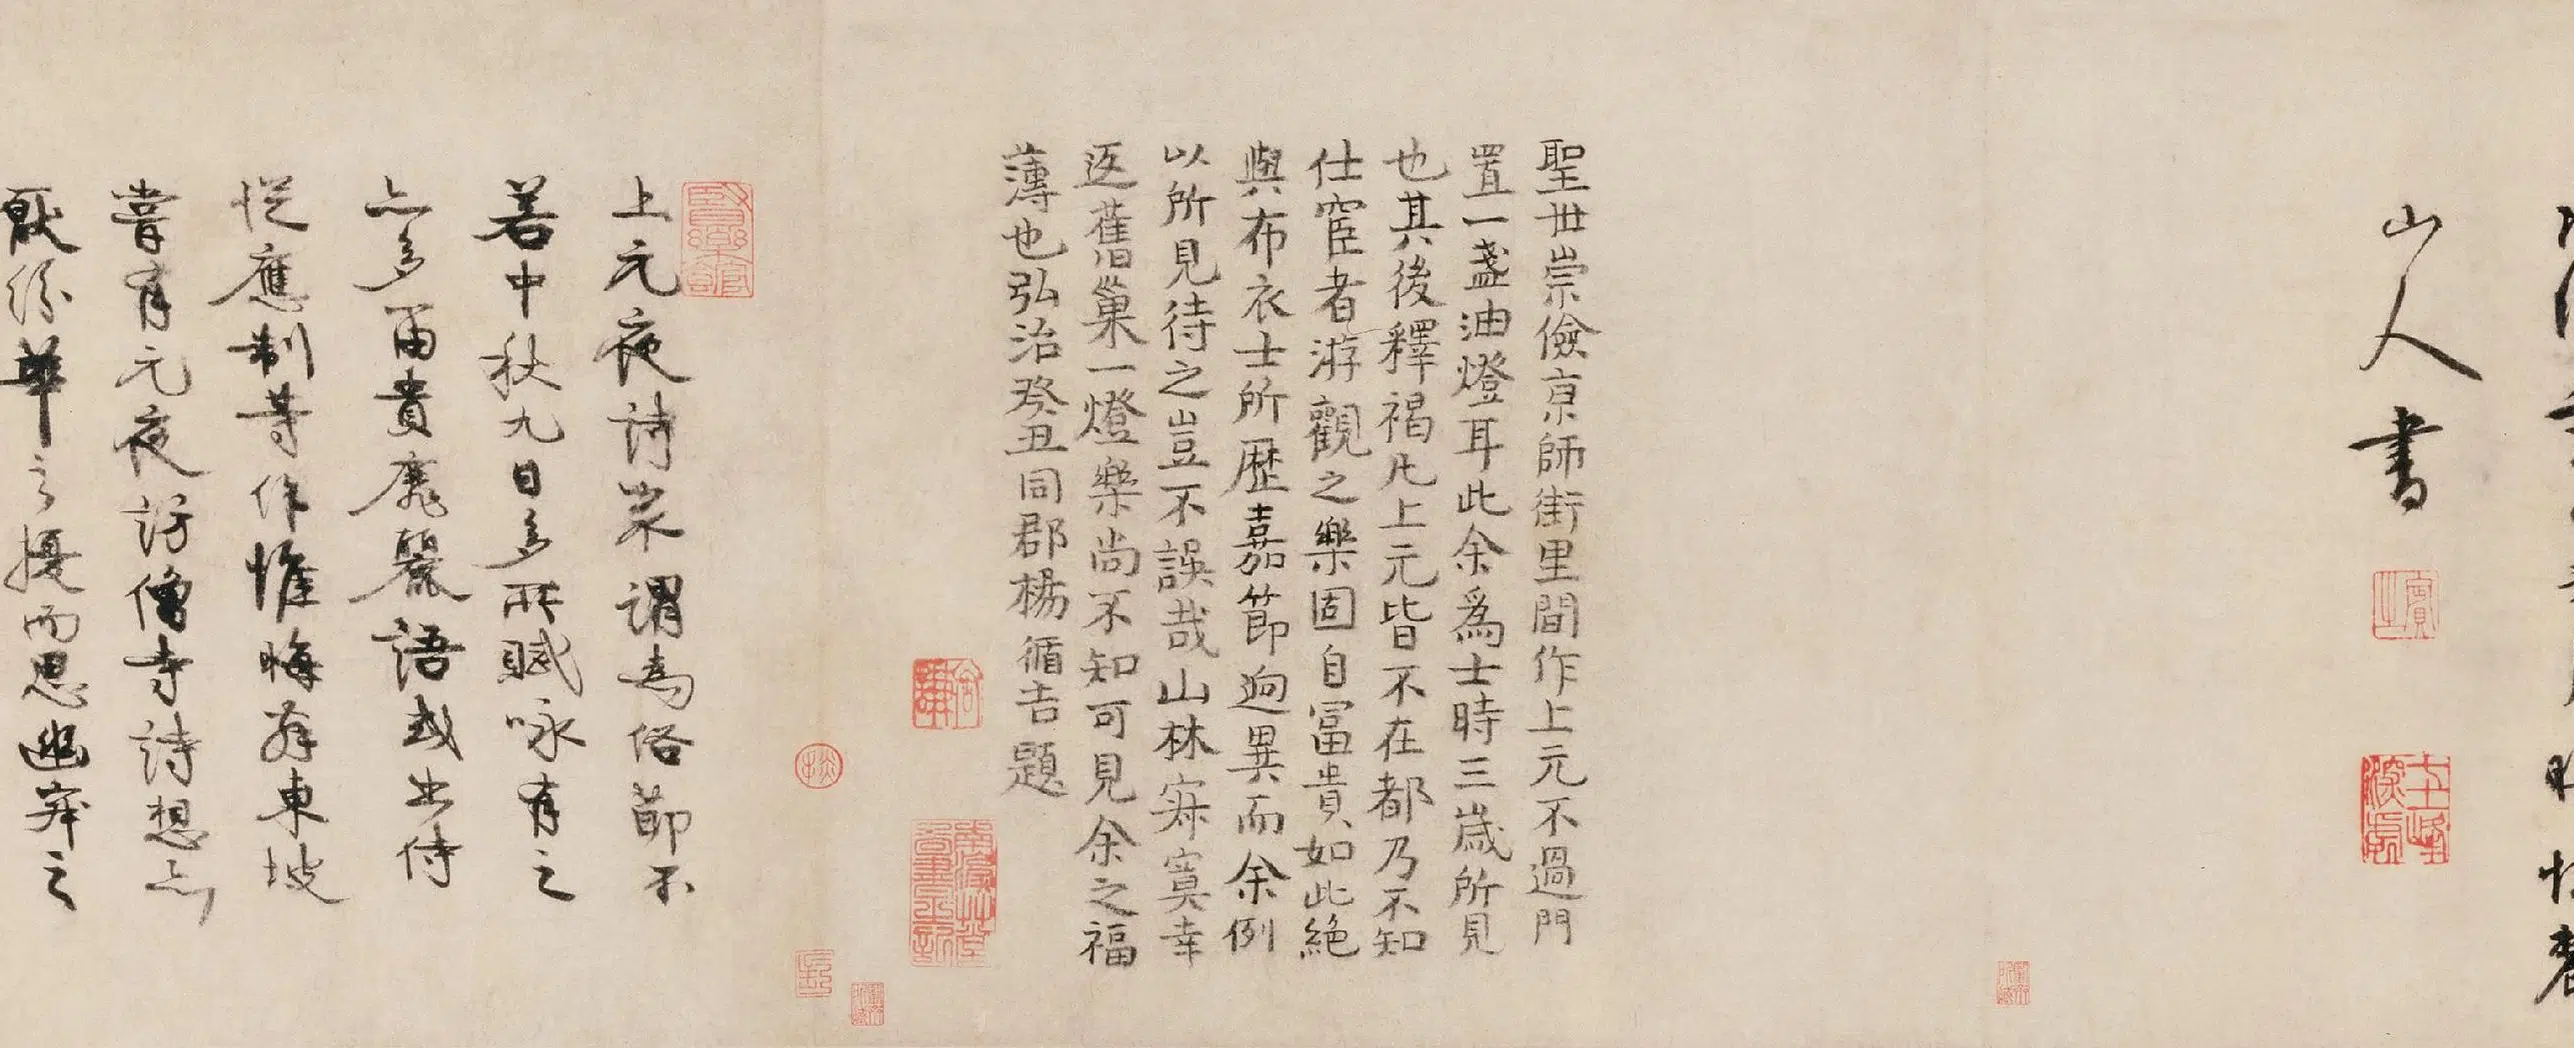 山人書
聖世崇儉京師街里間作上元不過門
置一盞油燈耳此余為士時三歲所見
也其後釋褐凡上元皆不在都乃不知
仕宦者游觀之樂固自富貴如此絕
與布衣士所歷嘉節逈異而余例
以所見待之豈不誤哉山林寂寞幸
返舊巢一燈樂尚不知可見余之福
薄也弘治癸丑同郡楊循吉題
上元夜詩家謂為俗節不
若中秋九日多所賦咏有之
亦多富貴靡麗語或出侍
從應制等作惟晦翁東坡
嘗有元夜訪僧寺詩想亦
厭紛華之擾而思幽寂之